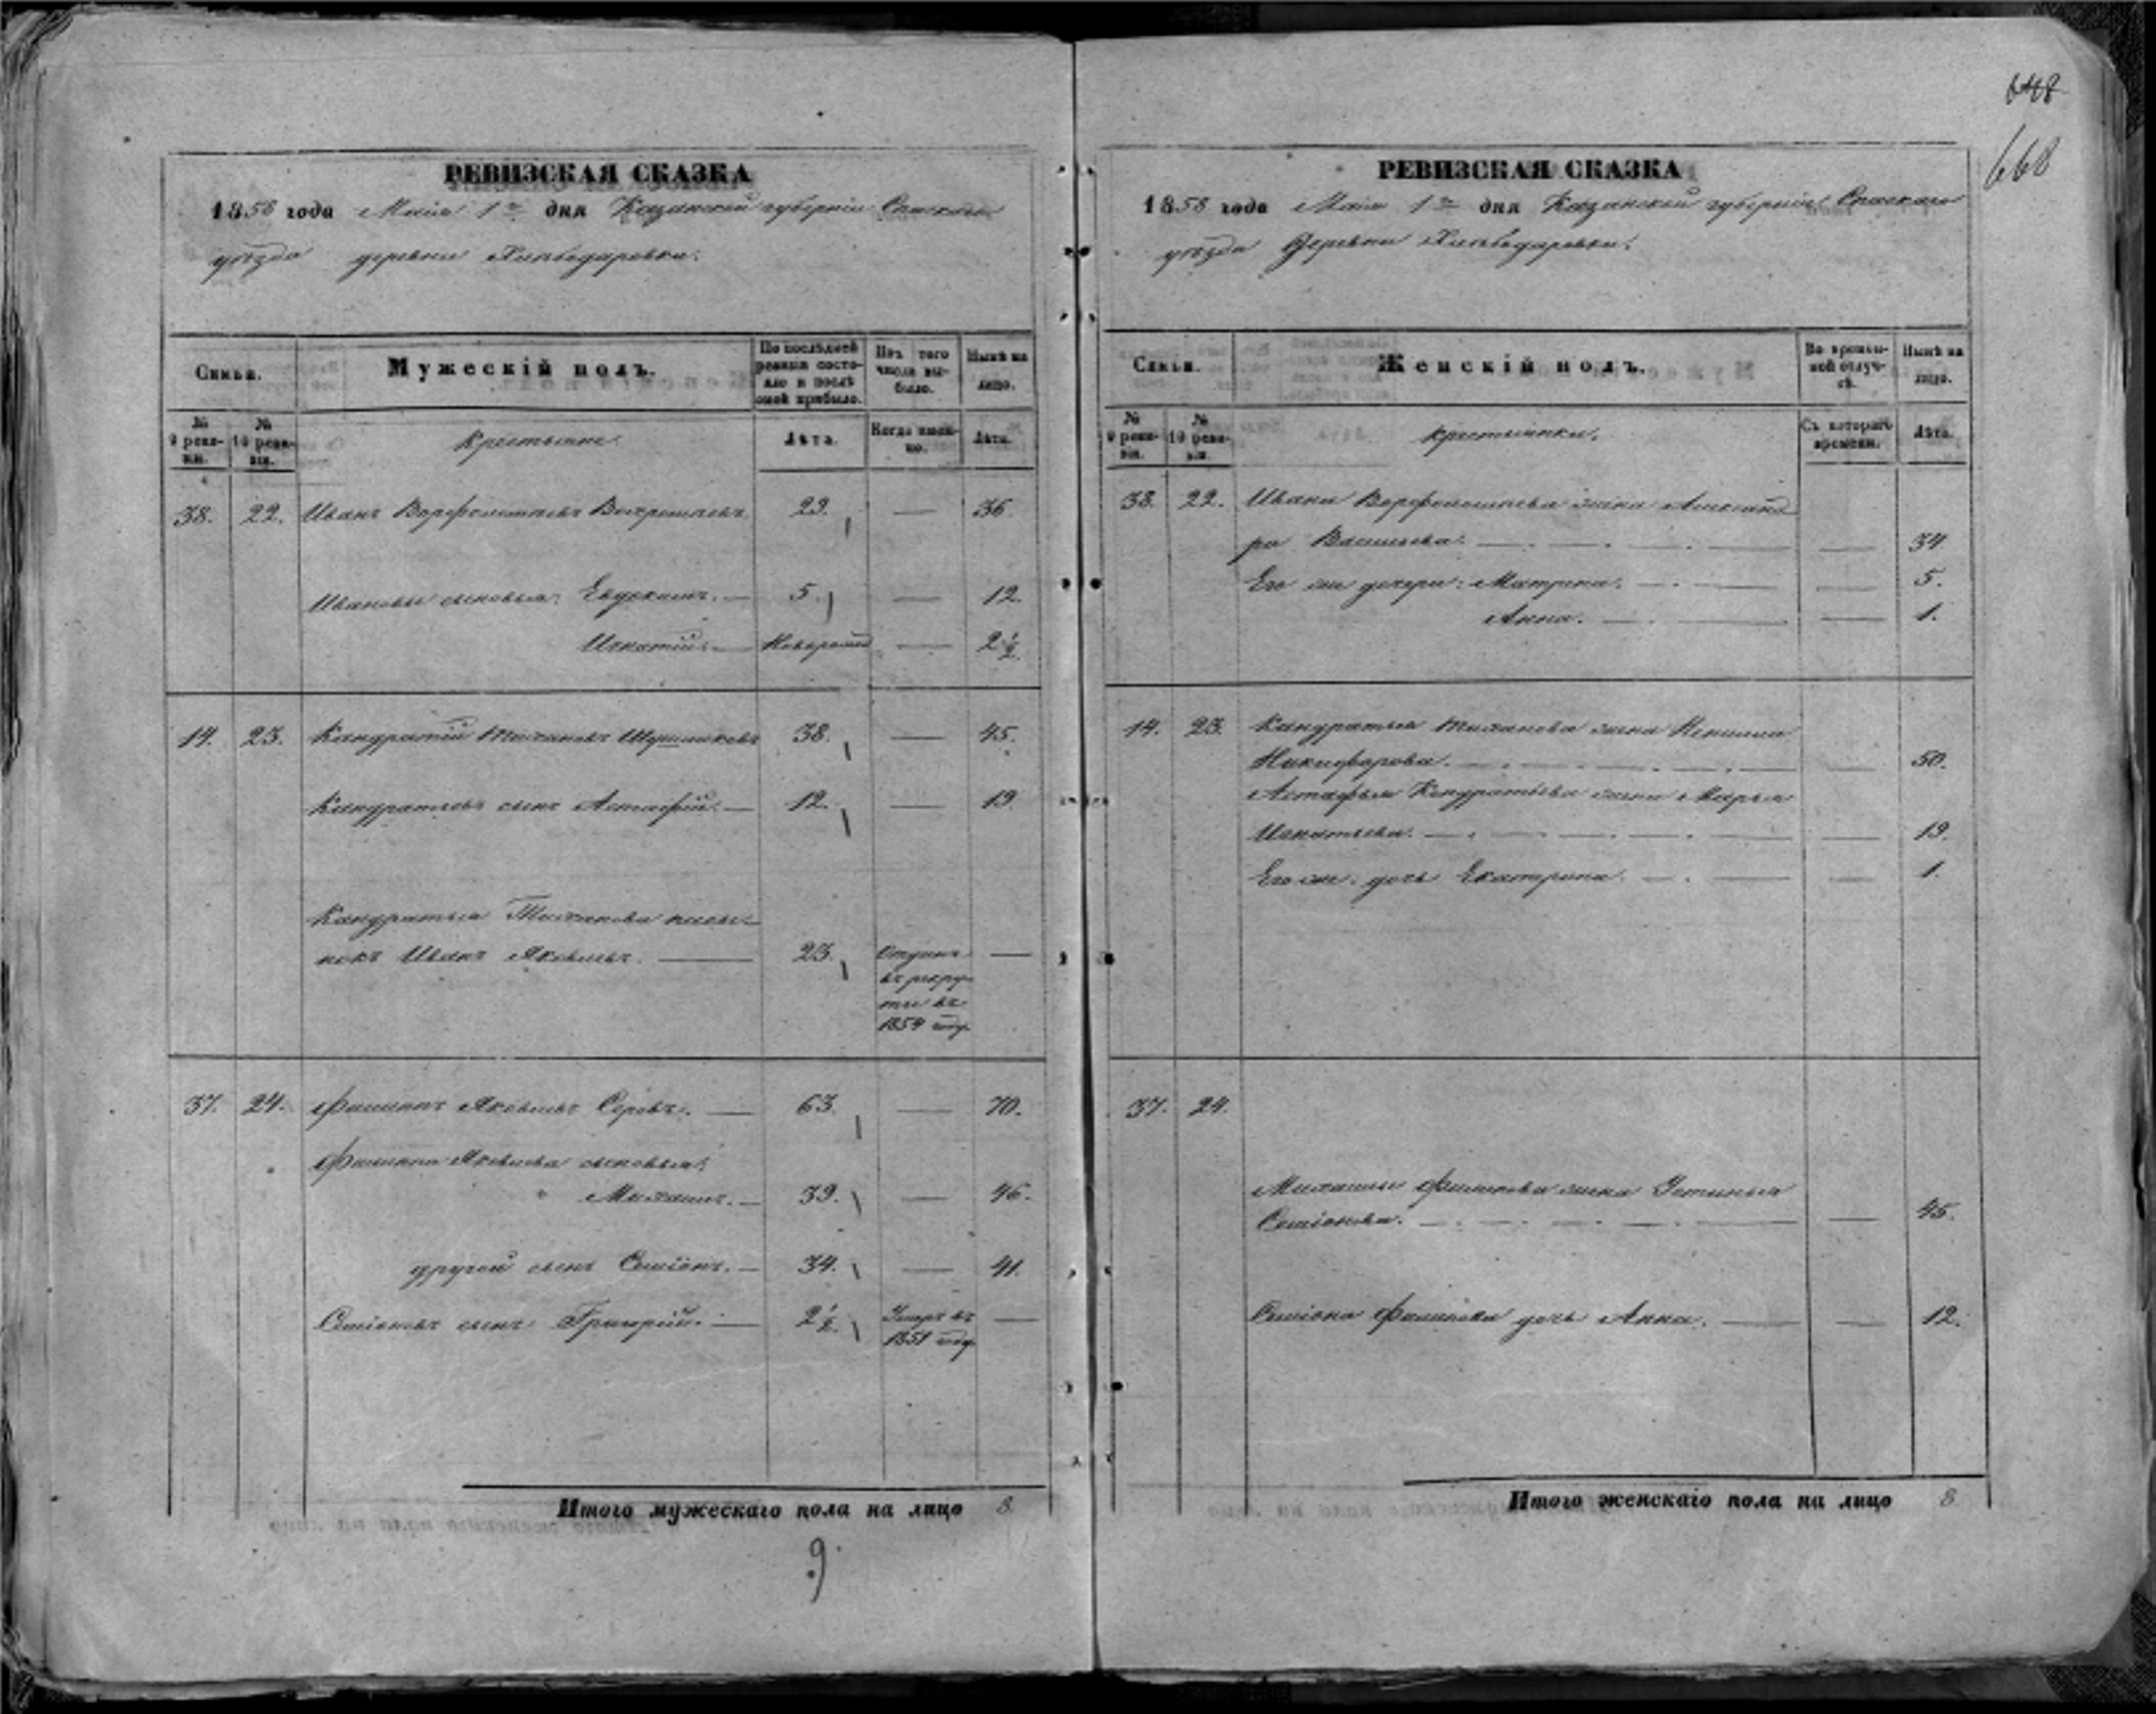 648
668
РЕВИЗСКАЯ СКАЗКА
1858 года Маія 1го дня Казанской губерніи Спаскаго
уѣзда деревни Хлѣбодаровки.
Семьи. Мужескій полъ. По послѣдней ревизіи состояло и послѣ оной прибыло. Изъ того числа выбыло. Нынѣ на лицо.
№ 9 ревизіи. № 10 ревизіи. Крестьяне Лѣта. Когда именно. Лѣта.
38. 22. Иванъ Ворфоломѣевъ 29. — 36
Ивановы сыновья: Евдокимъ. — 5. — 12.
Игнатій. — Новорожд — 2½
14. 23. Кандратій Тихановъ 38. — 45.
Кандратьевъ сынъ Астафій. — 12. — 19
Кандратья Тиханова пасы-
нокъ Иванъ Яковлевъ. — 23. Отданъ —
въ рекру-
ты въ
1854 году.
37. 24. Филипъ Яковлевъ Серовъ. — 63. — 70.
Филипа Яковлева сыновья:
Михаилъ. — 39. — 46.
другой сынъ Семіонъ. — 34. — 41.
Семіоновъ сынъ Григорій. — 2½ Умеръ въ —
1851 году
Итого мужескаго пола на лицо 8
9.
РЕВИЗСКАЯ СКАЗКА
1858 года Маія 1го дня Казанской губерніи Спаскаго
уѣзда Деревни Хлѣбодаровки.
Семьи. Женскій полъ. Во временной отлучкѣ. Нынѣ на лицо.
№ 9 ревизіи. № 10 ревизіи. крестьянки. Съ котораго времени. Лѣта.
38. 22. Ивана Ворфоломѣева жена Александ
ра Васильева. — — 34
Его же дочери: Матрена. — — 5.
Анна. — — 1.
14. 23. Кандратья Тиханова жена
Никифорова. — — 50.
Астафья Кондратьева жена Марья
Игнатьева. — — 19.
Его же дочь Екатерина. — — 1.
37. 24.
Михаилы Филипова жена Устинья
Семіонова. — — 45.
Семіона Филипова дочь Анна. — — 12.
Итого женскаго пола на лицо 8.